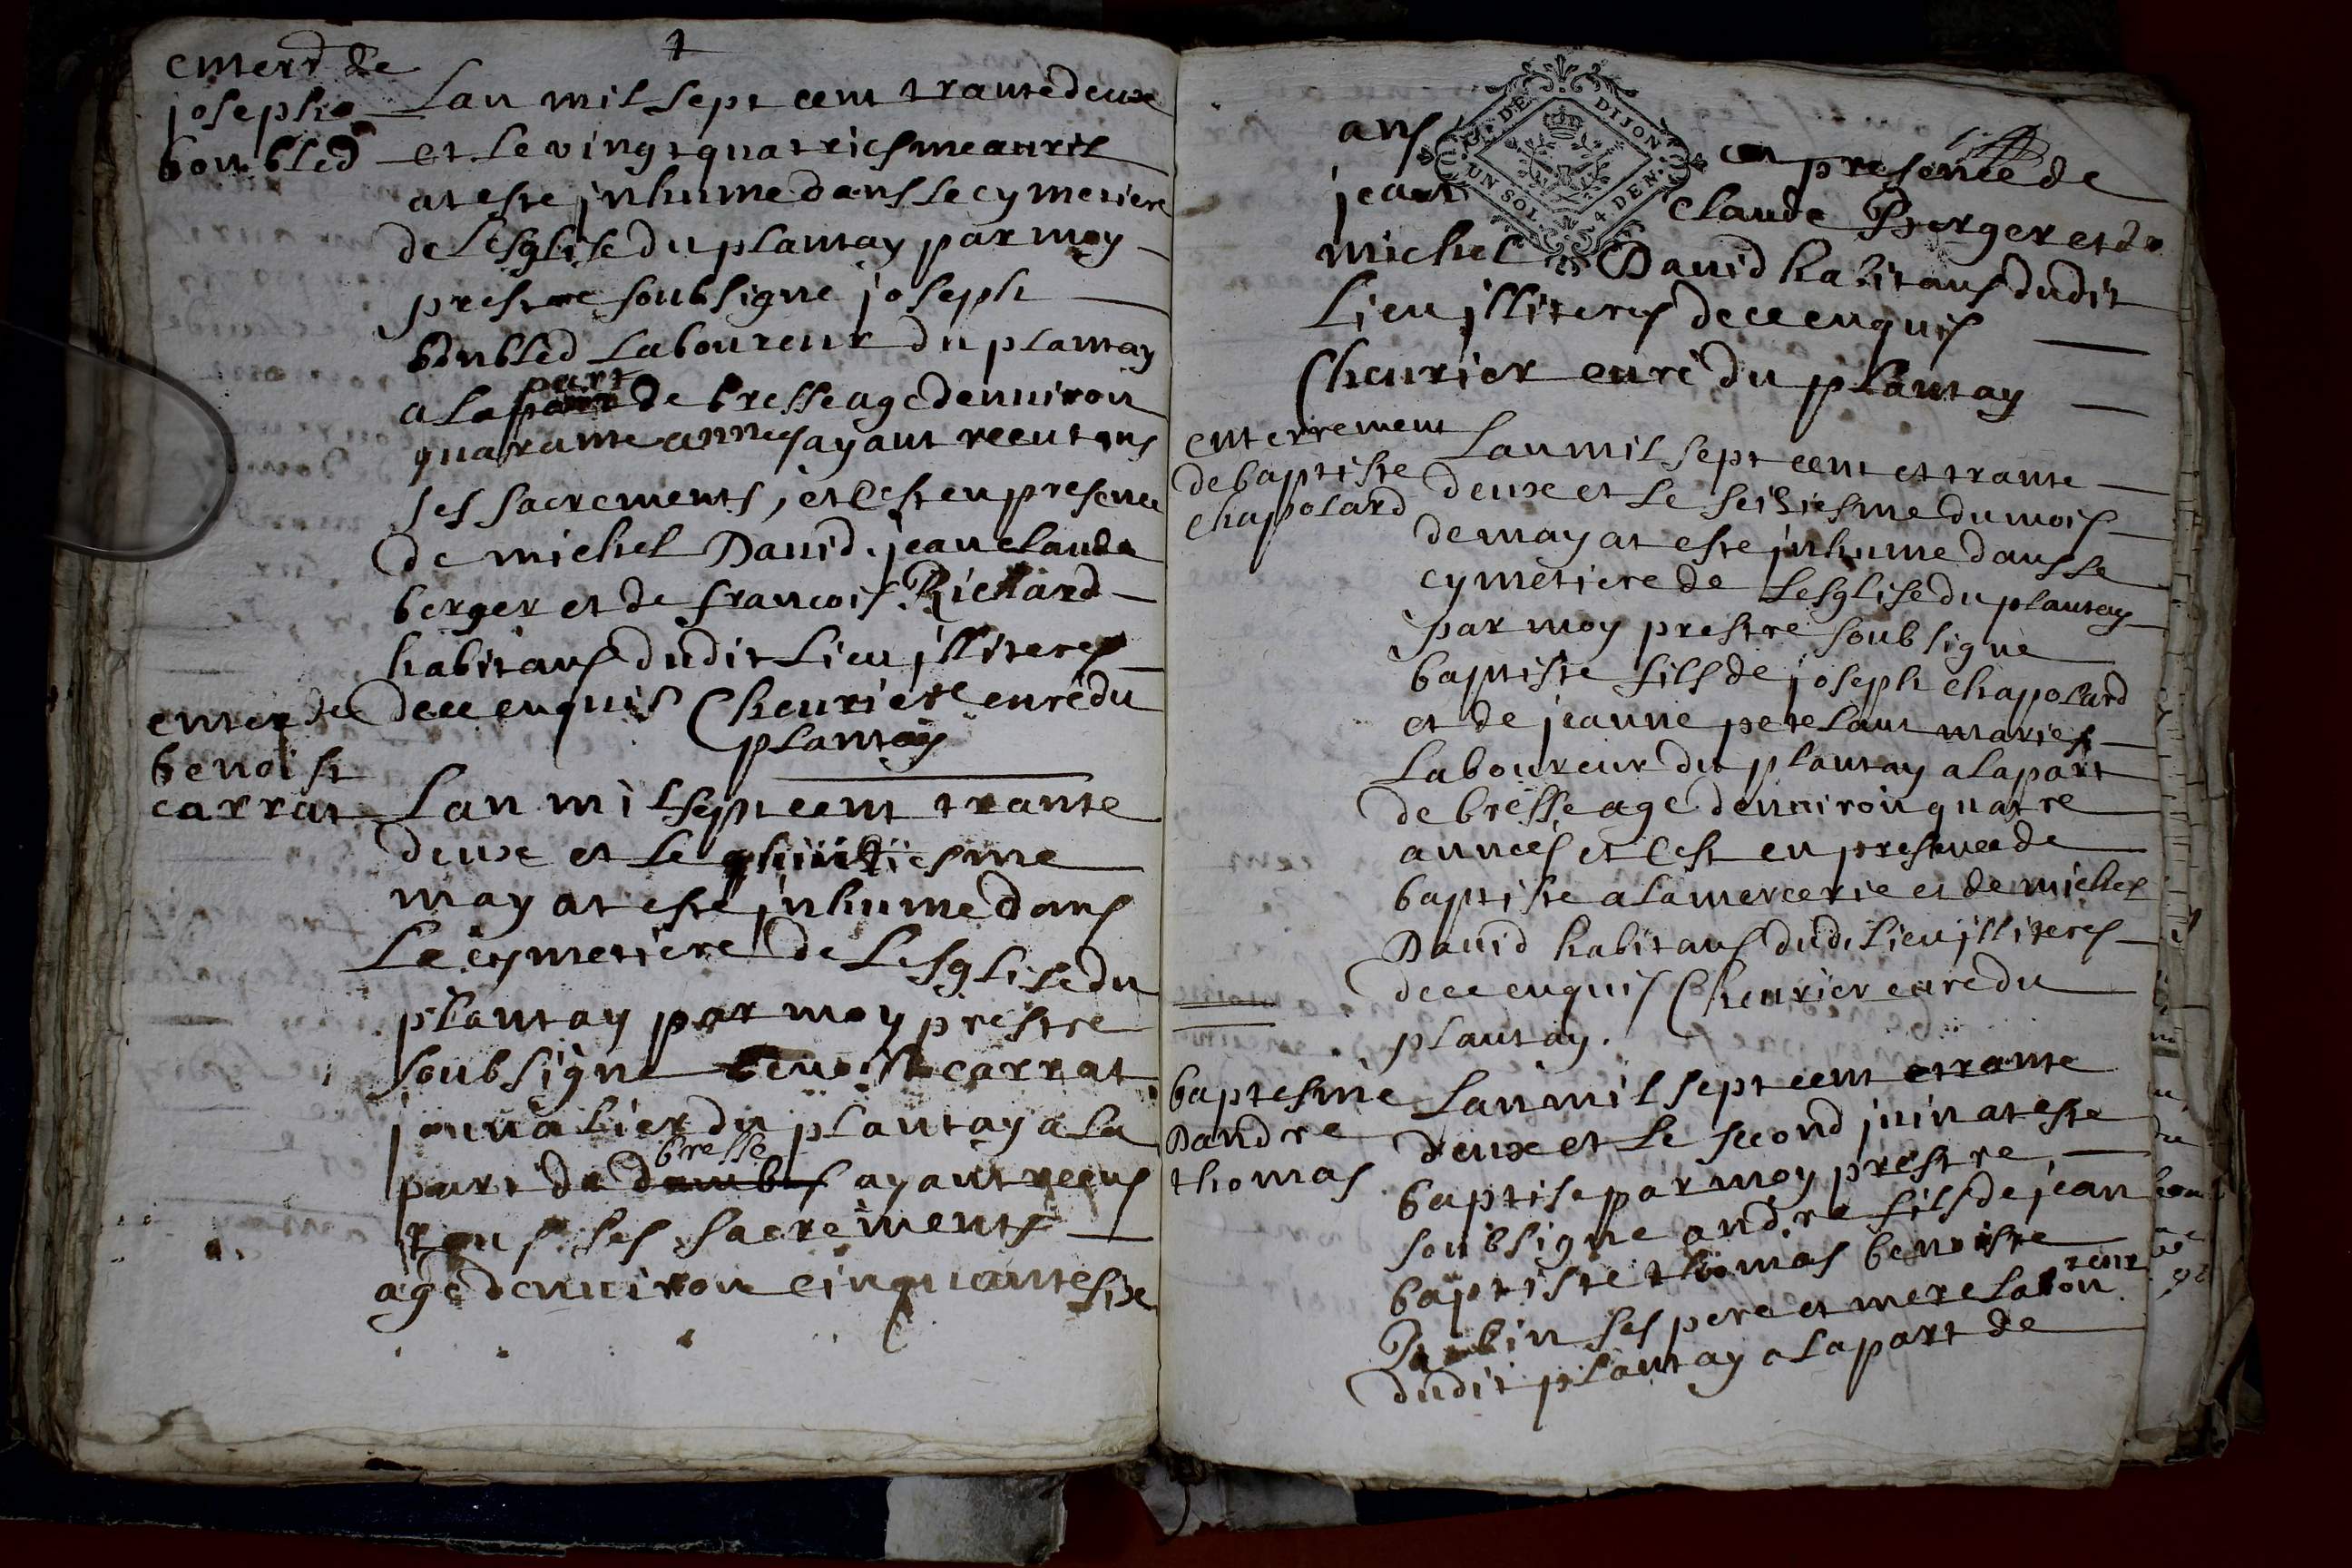 enterr de
josephe
boubled
Lan mil sept cent trante deux
et le vingt quatriesme auril
at este jnhume dans le cymetiere
de Lesglise du plantay par moy
prestre soubsigne joseph
boubled Laboureur du plantay
part
a la de bresse age denuiron
quarante annes ayant recut tous
ses sacrements, et cest en presence
de michel Dauid. jean claude
berger et de francois Richard
habitans dudit Lieu jlliteres
de ce enquis Cheurier curé du
plantay
enter de
benoist
carrat
Lan mil sept cent trante
deux et le
may at esté jnhume dans
Le cymetiere de Lesglise du
plantay par moy prestre
soubsigne benoist carrat
journalier du plantay a la
bresse
part de dombes ayant recus
tous ses sacrements
age denuiron cinquante six
ans en presence de
jean claude Berger et de
michel Dauid habitans dudit
Lieu jlliteres de ce enquis
Cheurier curé du plantay
G. DE DIJON
UN SOL 4. DEN.
enterrement
de baptiste
chapolard
Lan mil sept cent et trante
deux et le seiziesme du mois
de may at este jnhume dans le
cymetiere de Lesglise du plantay
par moy prestre soubsigné
baptiste fils de joseph chapolard
et de jeanne petelant maries
Laboureur du plantay a la part
de bresse age denuiron quatre
années et cest en presence de
baptiste alamercerie et de michel
Dauid habitans dud. Lieu jlliteres
de ce enquis Cheurier curé du
plantay.
baptesme
Dandre
thomas
Lan mil sept cent et trante
deux et le second juin at este
baptise par moy prestre
soubsigne andre fils de jean
baptiste thomas benoiste
reur
ses pere et mere labou
dudit plantay a la part de